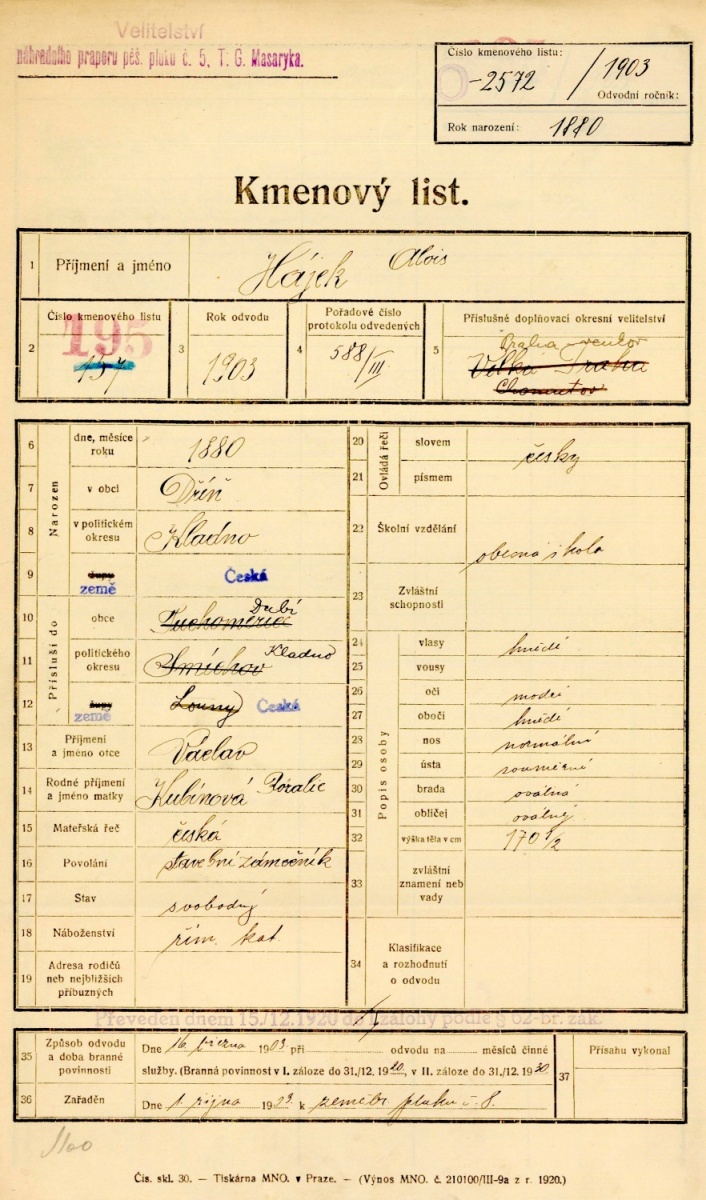 Velitelství
náhradního praporu pěš. pluku č. 5, T. G. Masaryka.
Číslo kmenového listu:
-2572 / 1903
Odvodní ročník:
Rok narození: 1880
Kmenový list.
1 Příjmení a jméno Hájek Alois
2 Číslo kmenového listu 195 157
3 Rok odvodu 1903
4 Pořadové číslo protokolu odvedených 588/III.
5 Příslušné doplňovací okresní velitelství
Praha venkov
Velká Praha
Chomutov
Narozen
6 dne, měsíce roku 1880
7 v obci Dříň
8 v politickém okresu Kladno
9 župy země Česká
Přísluší do
10 obce Tuchoměřice Dubí
11 politického okresu Smíchov Kladno
12 župy země Louny Česká
13 Příjmení a jméno otce Václav
14 Rodné příjmení a jméno matky Kubínová
15 Mateřská řeč česká
16 Povolání stavební zámečník
17 Stav svobodný
18 Náboženství řím. kat.
19 Adresa rodičů neb nejbližších příbuzných
Ovládá řeči
20 slovem česky
21 písmem
22 Školní vzdělání obecná škola
23 Zvláštní schopnosti
Popis osoby
24 vlasy hnědé
25 vousy
26 oči modré
27 obočí hnědé
28 nos normální
29 ústa souměrné
30 brada oválná
31 obličej oválný
32 výška těla v cm 170 1/2
33 zvláštní znamení neb vady
34 Klasifikace a rozhodnutí o odvodu
Převeden dnem 15./12. 1920 do I. zálohy podle § 62-br. zák.
35 Způsob odvodu a doba branné povinnosti
Dne 16. března 1903 při odvodu na měsíců činné
služby. (Branná povinnost v I. záloze do 31./12. 1920, v II. záloze do 31./12. 1930
36 Zařaděn Dne 1. října 1903 k zeměbr. pluku č. 8.
37 Přísahu vykonal
1100
Čís. skl. 30. — Tiskárna MNO. v Praze. — (Výnos MNO. č. 210100/III-9a z r. 1920.)